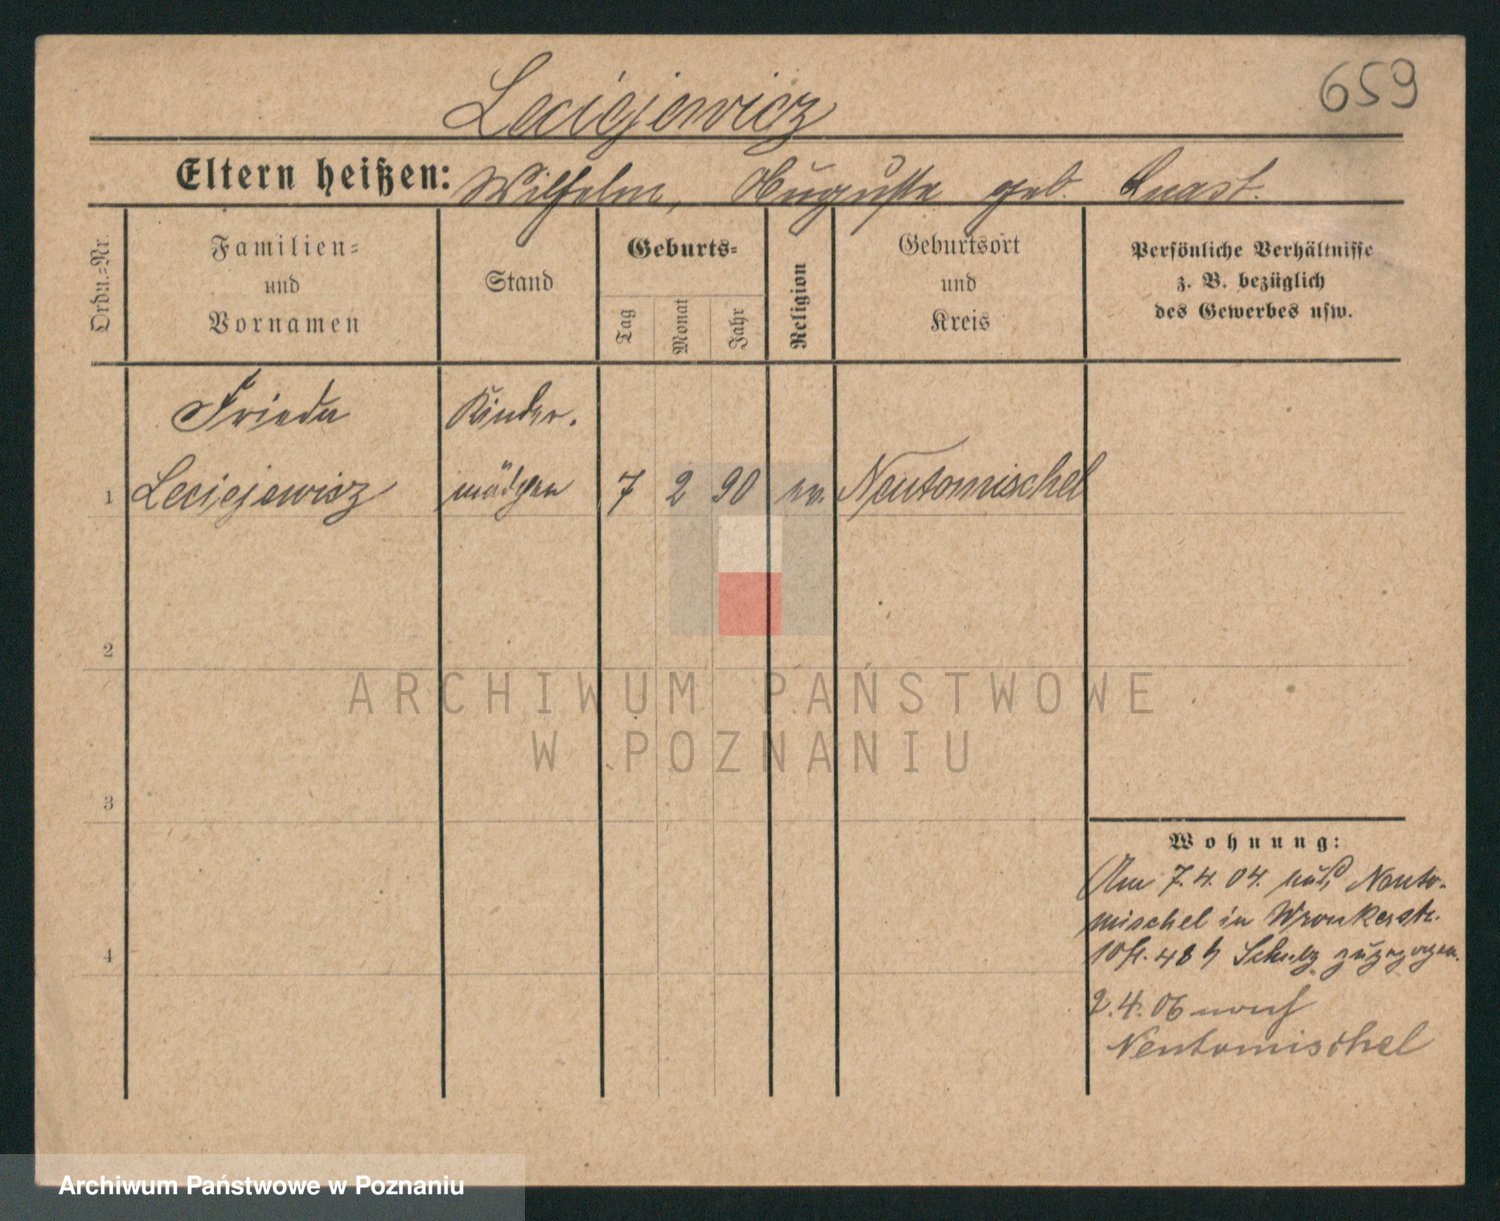 659
Leciejewicz
Eltern heißen: Wilhelm, Auguste geb. Quast.
Ordn.=Nr.
Familien=
und
Vornamen
Stand
Geburts=
Tag
Monat
Jahr
Religion
Geburtsort
und
Kreis
Persönliche Verhältnisse
z. B. bezüglich
des Gewerbes usw.
Frieda Kinder.
1 Leciejewicz mädchen 7 2 90 ev. Neutomischel
2
3
4
Wohnung:
Am 7.4.04. aus Neuto-
mischel in Wronkerstr.
10 48 Schulz zugezogen.
2.4.06 nach
Neutomischel
ARCHIWUM PAŃSTWOWE
W POZNANIU
Archiwum Państwowe w Poznaniu